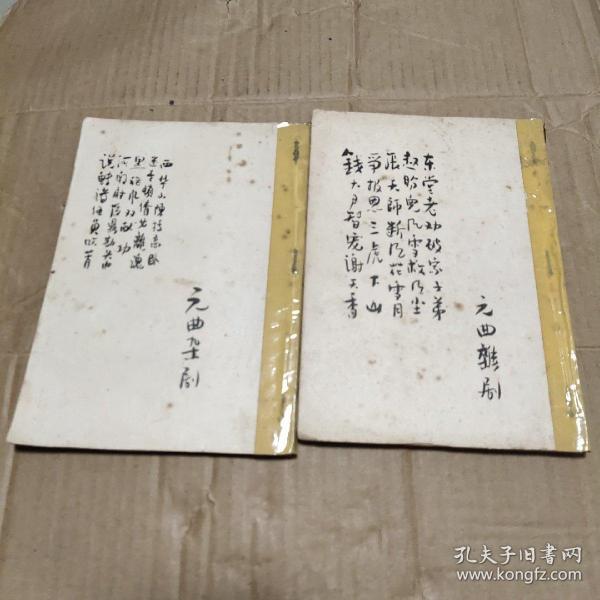 西华山陈抟高卧
迷青琐倩女離魂
黑旋风双献功
河南府张鼎勘头巾
说鱄诸伍员吹箫
元曲杂剧
东堂老劝破家子弟
赵盼兒风雪救风尘
张天师断风花雪月
争报恩三虎下山
錢大尹智宠谢天香
元曲雜剧
孔夫子旧书网
www.kongfz.com